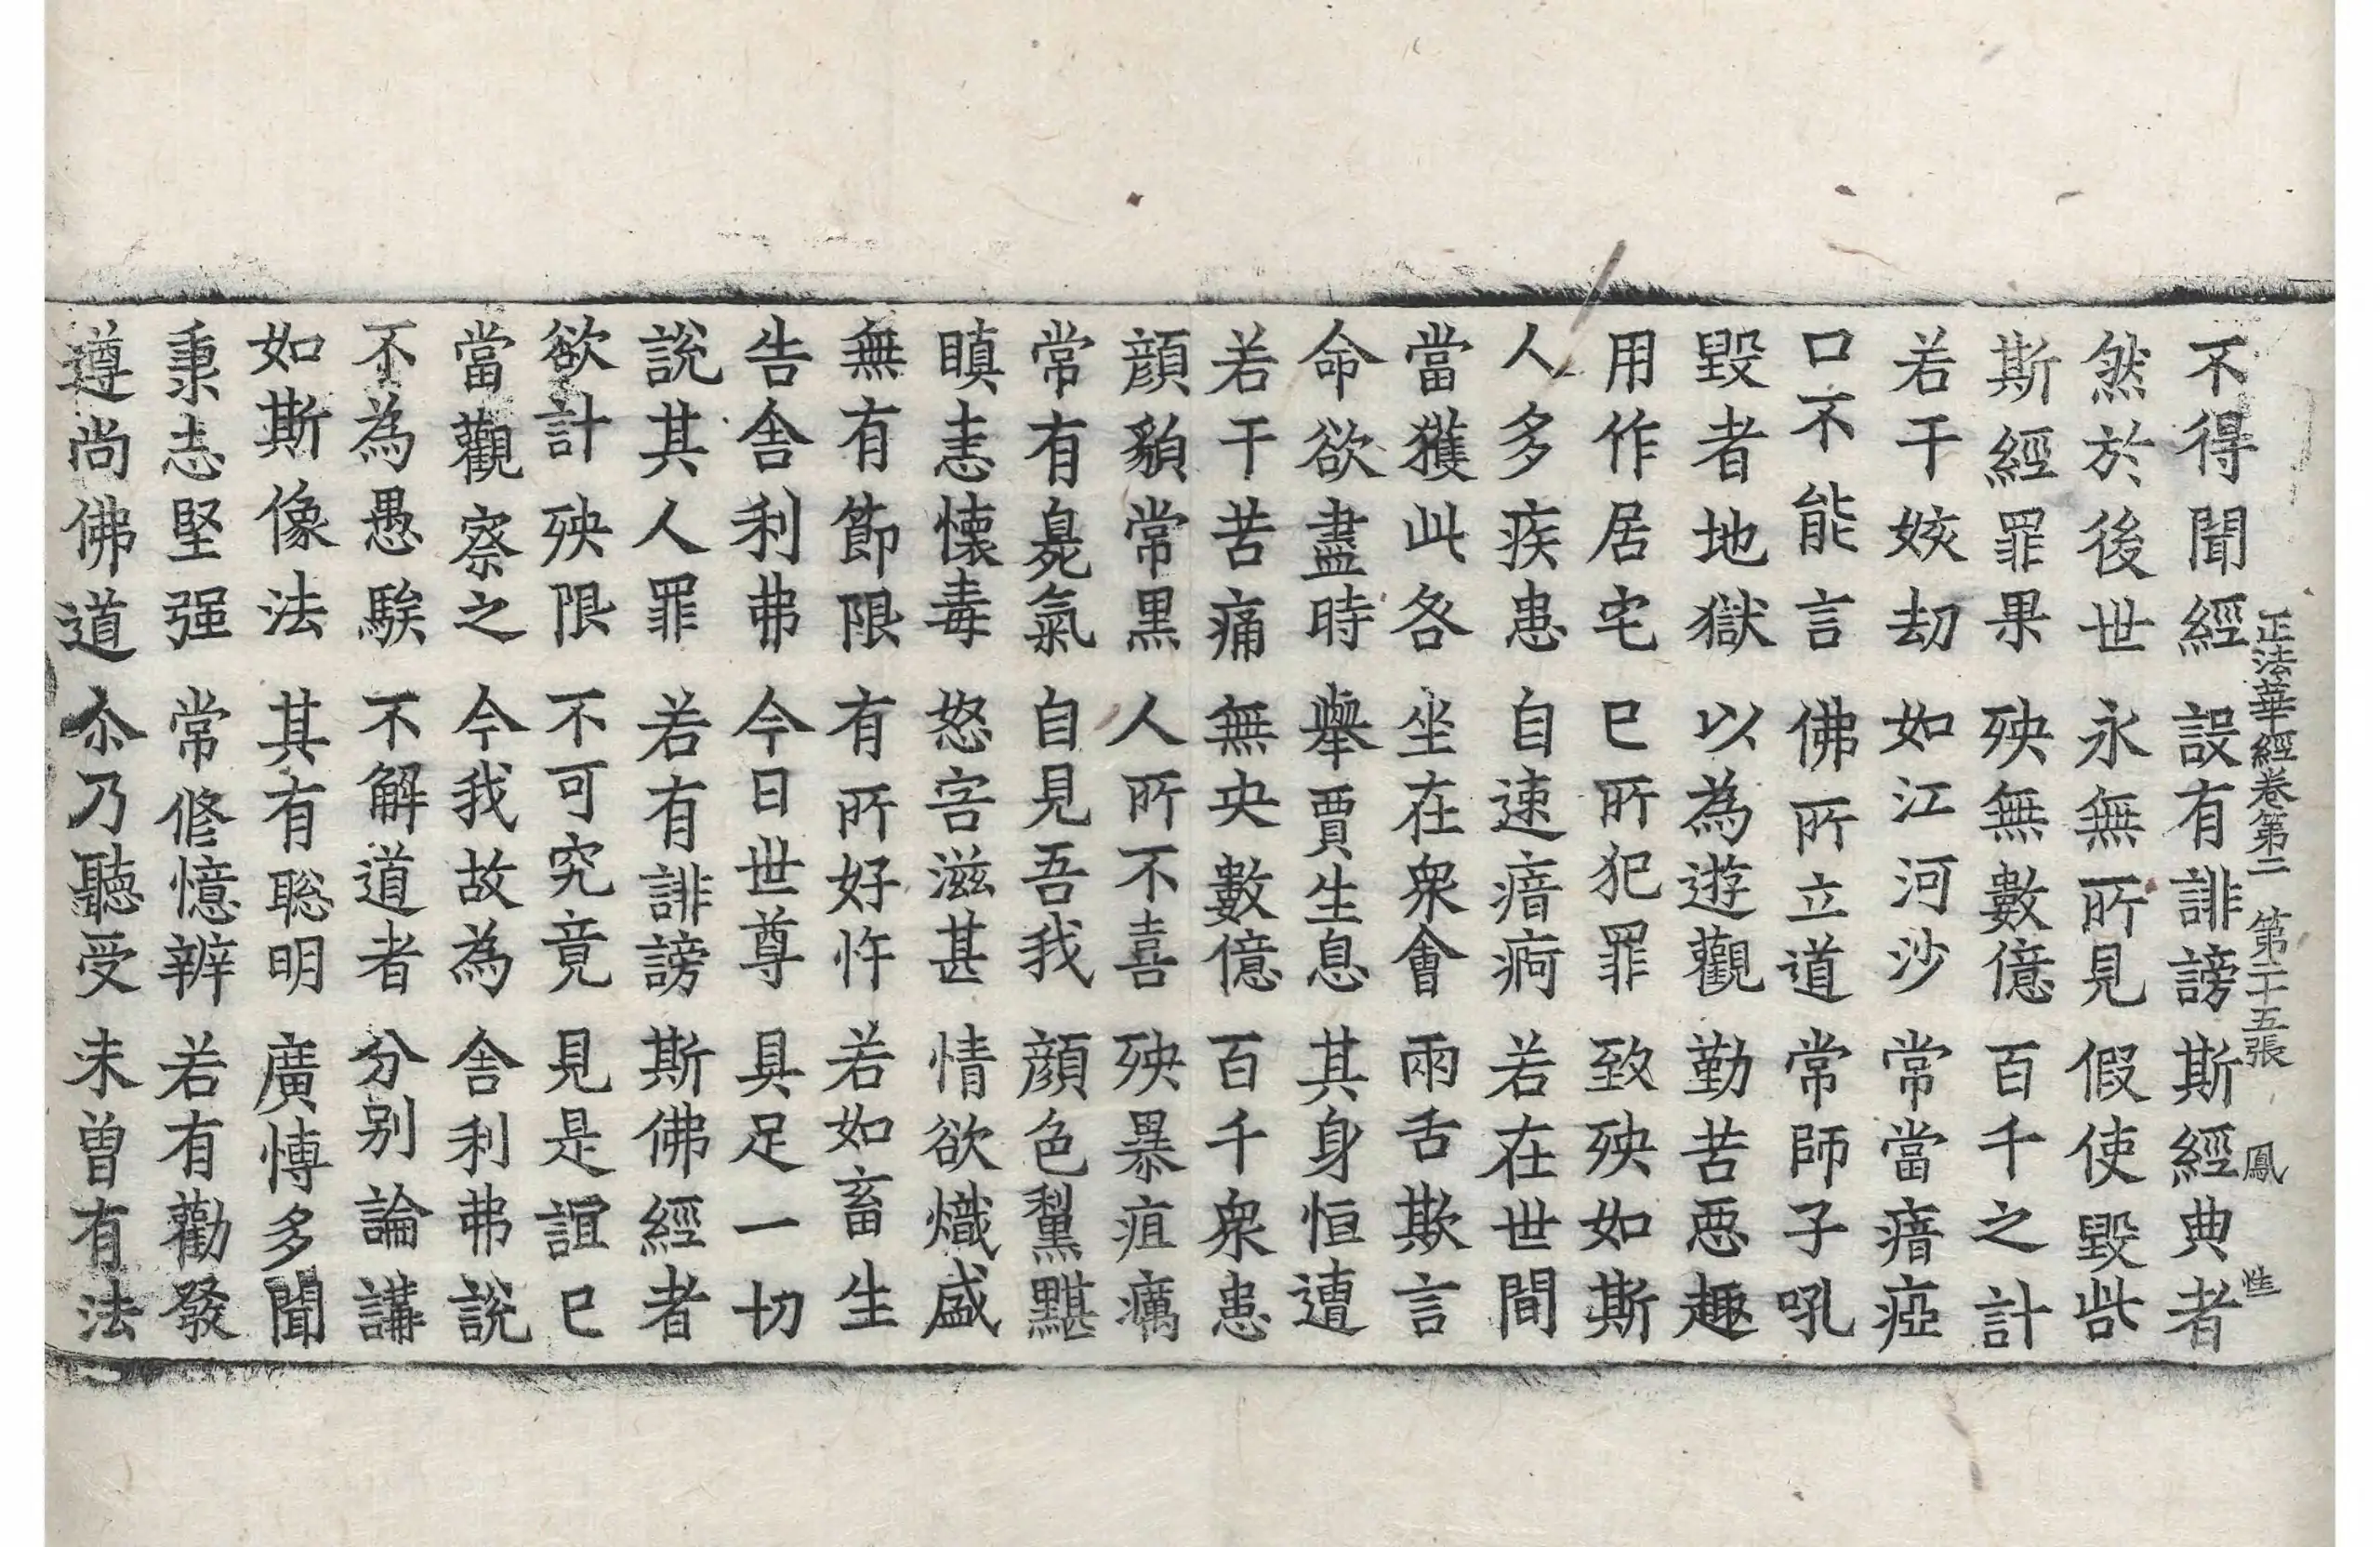 正法華經卷第二 第二十五張 鳳
不得聞經 設有誹謗 斯經典者
然於後世 永無所見 假使毀呰
斯經罪果 殃無數億 百千之計
若干姟劫 如江河沙 常當瘖瘂
口不能言 佛所立道 常師子吼
毀者地獄 以為遊觀 勤苦惡趣
用作居宅 己所犯罪 致殃如斯
人多疾患 自速瘖痾 若在世間
當獲此各 坐在衆會 兩舌欺言
命欲盡時 舉賈生息 其身恒遭
若干苦痛 無央數億 百千衆患
顏貌常黑 人所不喜 殃暴疽癘
常有臭氣 自見吾我 顏色黧黮
瞋恚懷毒 怒害滋甚 情欲熾盛
無有節限 有所好忤 若如畜生
告舍利弗 今日世尊 具足一切
說其人罪 若有誹謗 斯佛經者
欲計殃限 不可究竟 見是誼已
當觀察之 今我故為 舍利弗說
不為愚騃 不解道者 分別論講
如斯像法 其有聡明 廣博多聞
秉志堅强 常修憶辨 若有勸發
遵尚佛道 尒乃聽受 未曾有法